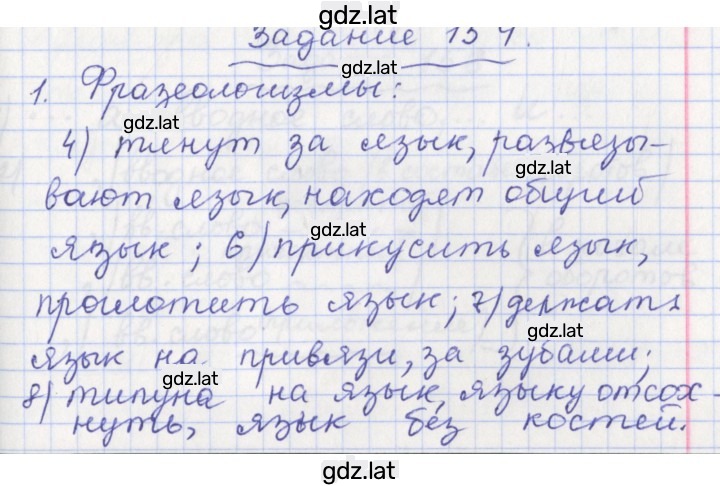 gdz.lat
Задание 134.
gdz.lat
1. Фразеологизмы:
gdz.lat
4) тянут за язык, развязы-
gdz.lat
вают язык, находят общий
gdz.lat
язык; 6) прикусить язык,
проглотить язык; 7) держать
gdz.lat
язык на привязи, за зубами;
gdz.lat
8) типуна на язык, языку отсох-
нуть, язык без костей.
gdz.lat
gdz.lat